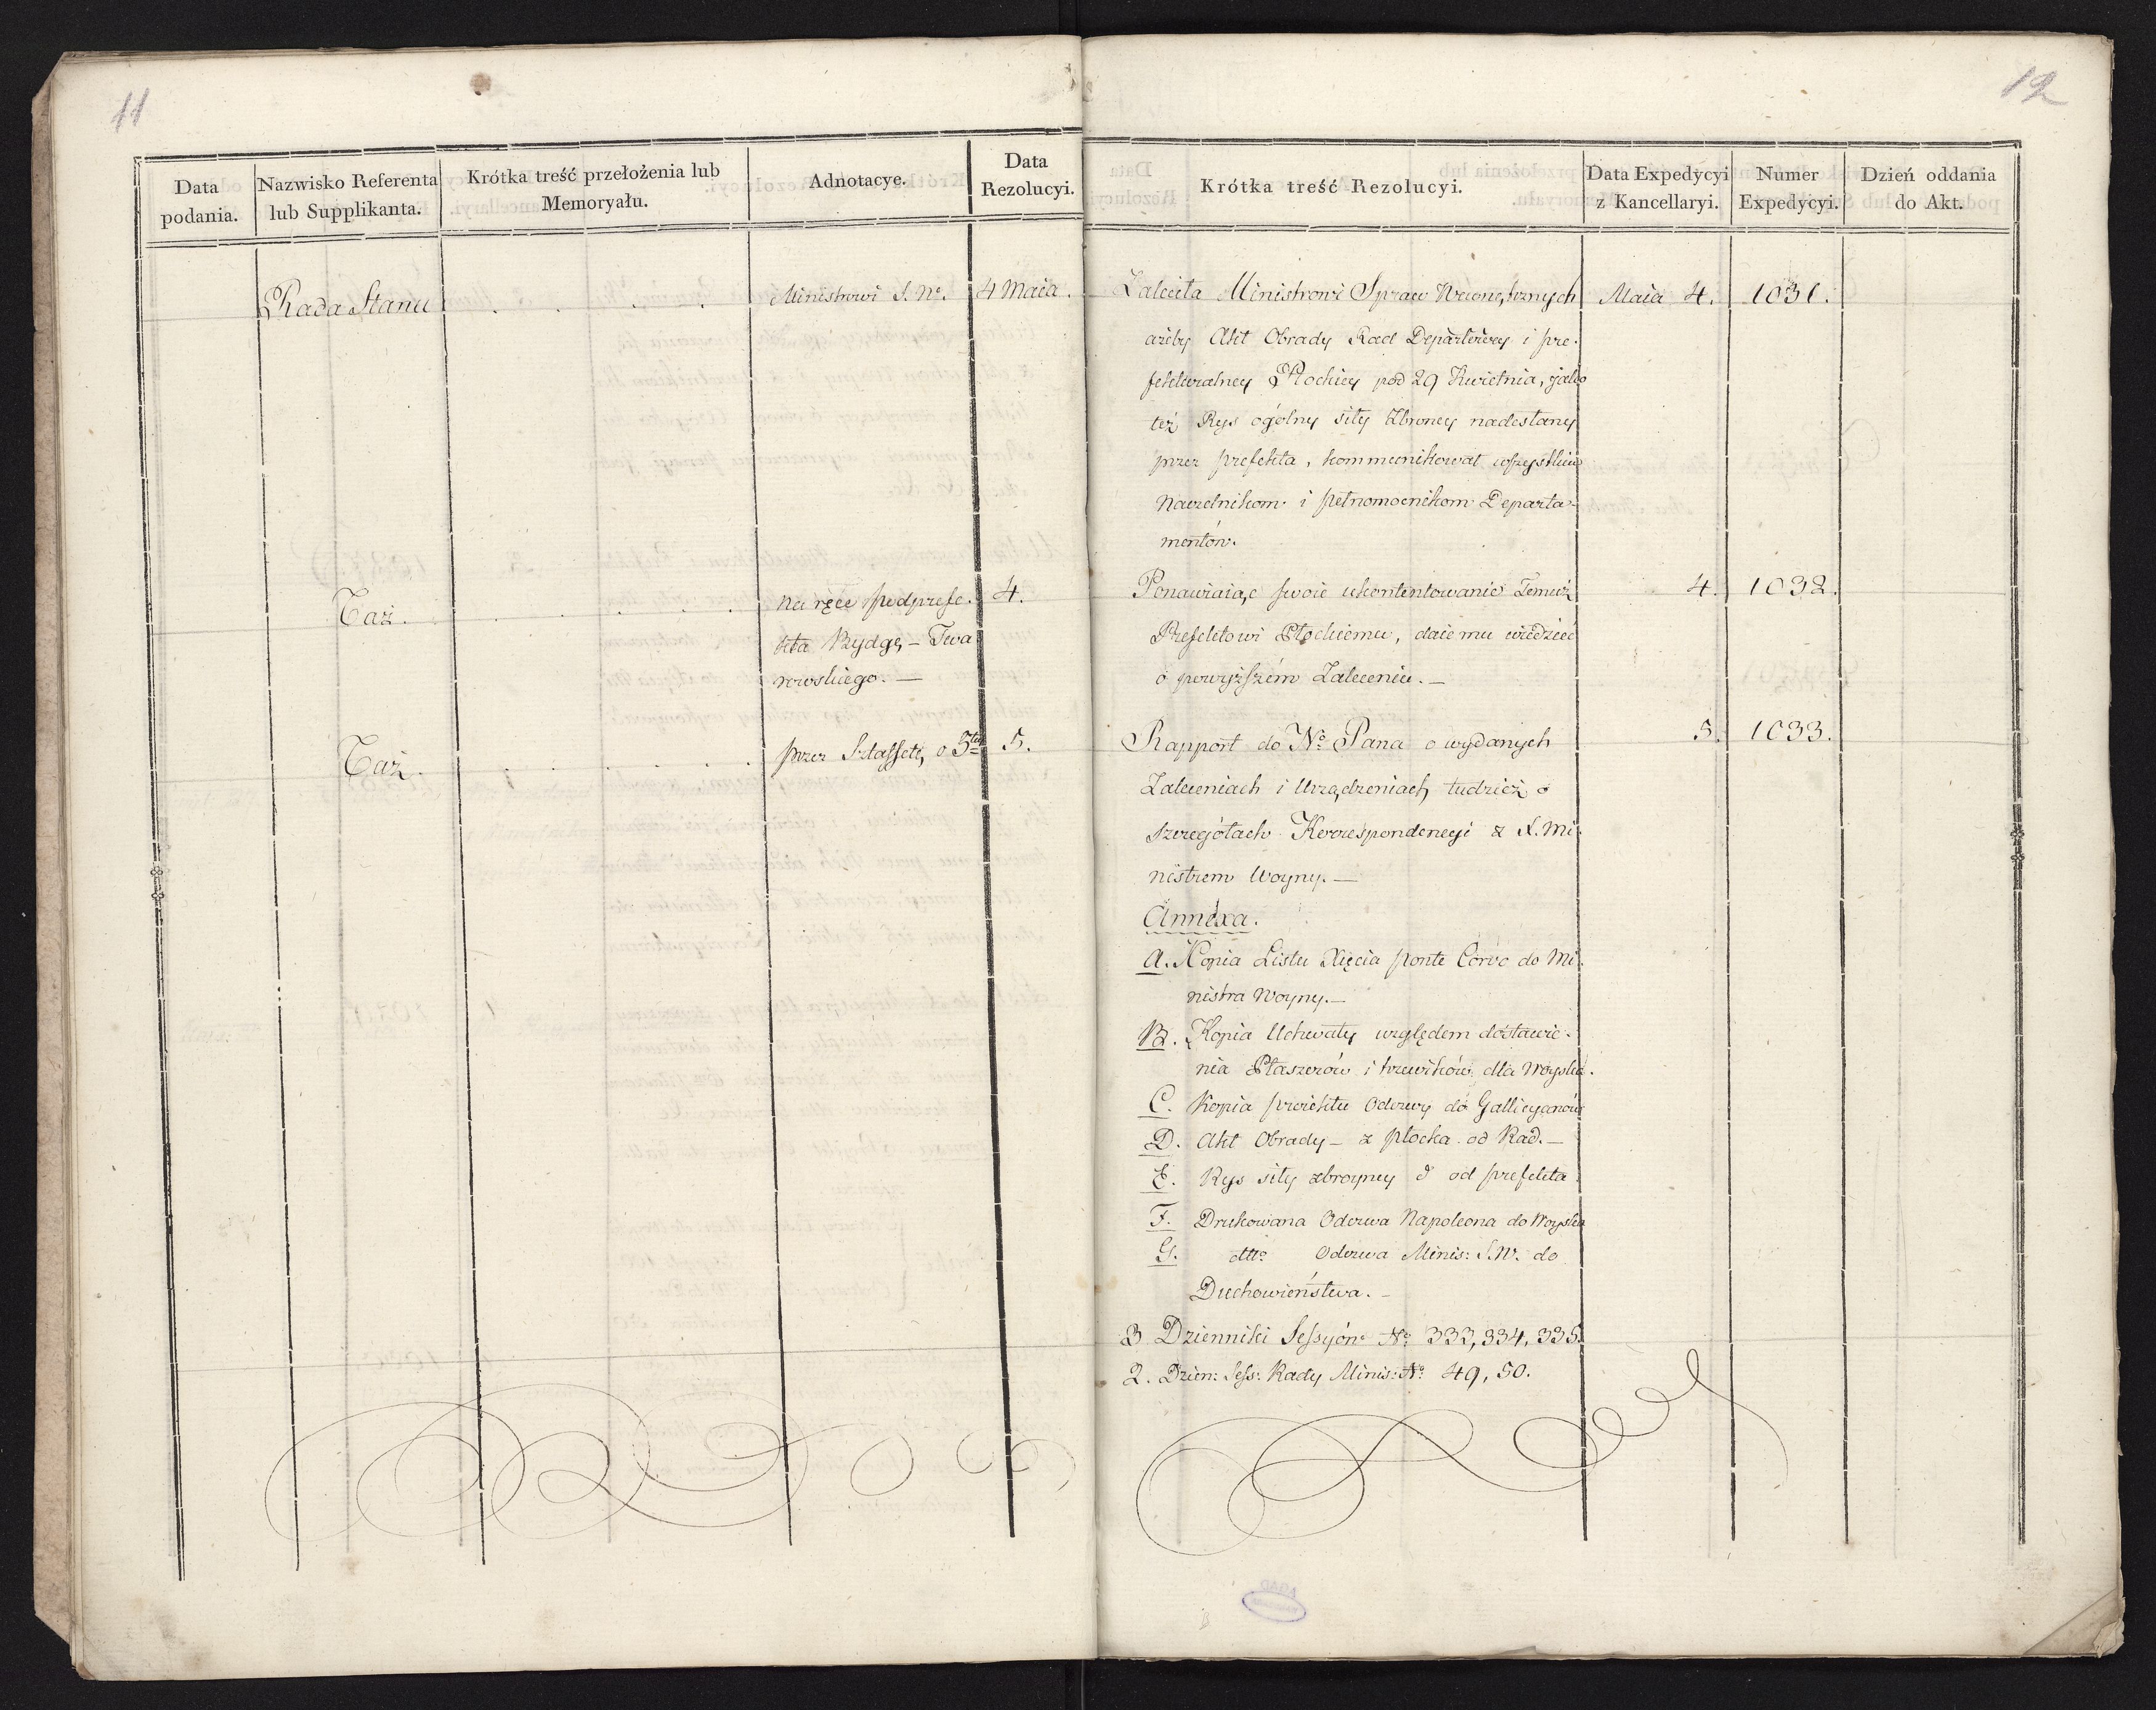 11
12
Data podania.
Nazwisko Referenta lub Supplikanta.
Krótka treść przełożenia lub Memoryału.
Adnotacye.
Data Rezolucyi.
Krótka treść Rezolucyi.
Data Expedycyi z Kancellaryi.
Numer Expedycyi.
Dzień oddania do Akt.
Rada Stanu . . . . Ministrowi S. W. 4 Maia.
Zaleciła Ministrowi Spraw Wewnętrznych Maia 4. 1031.
ażeby Akt Obrady Rad Departowey i pre-
fekturalney Płockiey pod 29 Kwietnia, jako
też Rys ogólny siły Zbroney nadesłany
przez prefekta, kommunikował wszystkim
Naczelnikom i pełnomocnikom Departa-
mentów.
Taż. . . . . na ręce podprefe- 4.
kta Bydgs – Twa
rowskiego. —
Ponawiaiąc swoie ukontentowanie Temuż 4. 1032.
Prefektowi Płockiemu, daie mu wiedzieć
o powyższém Zaleceniu. —
Taż. . . . . . przez Sztaffetę o 5tey 5.
Rapport do Nº Pana o wydanych 5. 1033.
Zaleceniach i Urządzeniach, tudzież o
szczegółach Korrespondencyi z X. Mi-
nistrem Woyny. —
Annexa.
A. Kopia Listu Xięcia Ponte Corvo do Mi-
nistra Woyny. —
B. Kopia Uchwały względem dostawie-
nia Płaszczów i trzewików dla Woyska.
C. Kopia proiektu Odezwy do Gallicyanów
D. Akt Obrady – z Płocka od Rad. —
E. Rys siły zbroyney d od prefekta.
F. Drukowana Odezwa Napoleona do Woyska
G. dtto Odezwa Minis: S.W. do
Duchowieństwa. —
3 Dzienniki Sessyów Nº 333, 334, 335.
2. Dzien: Sess: Rady Minis: Nº 49, 50.